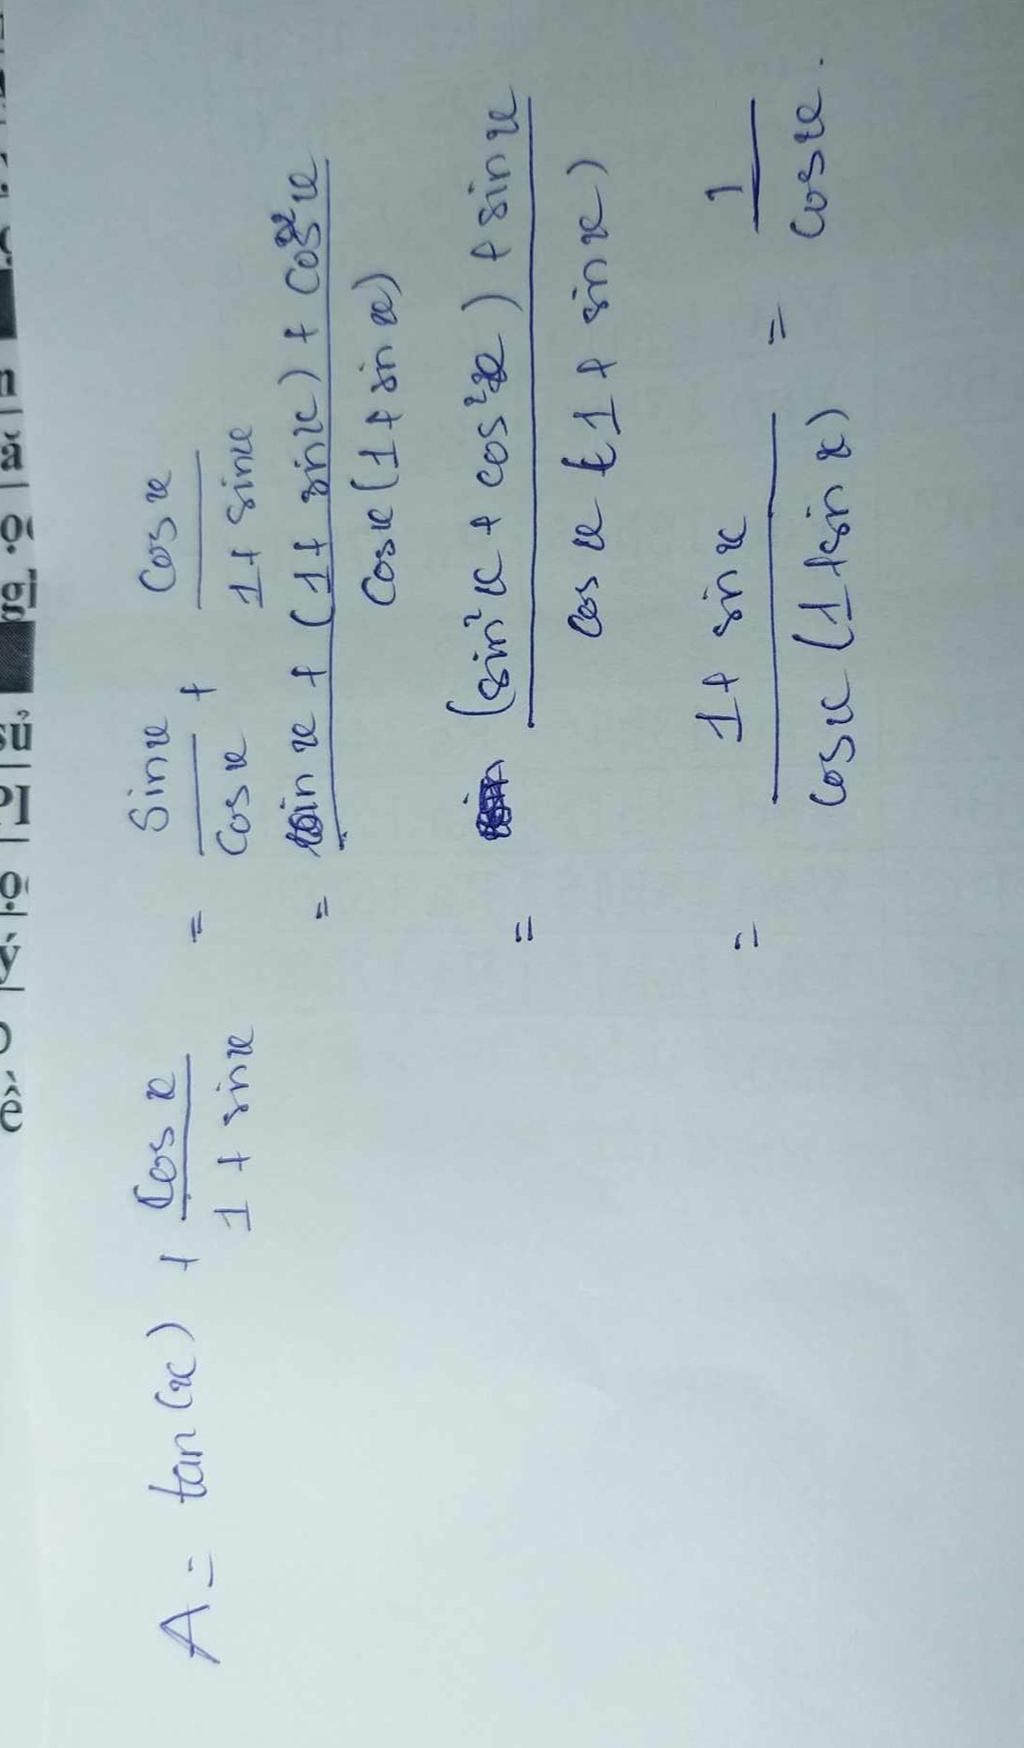 A = tan(x) + cos x / 1 + sin x = sin x / cos x + cos x / 1 + sin x
= sin x + (1 + sin x) + cos²x / cos x (1 + sin x)
= (sin²x + cos²x) + sin x / cos x (1 + sin x)
= 1 + sin x / cos x (1 + sin x) = 1 / cos x.